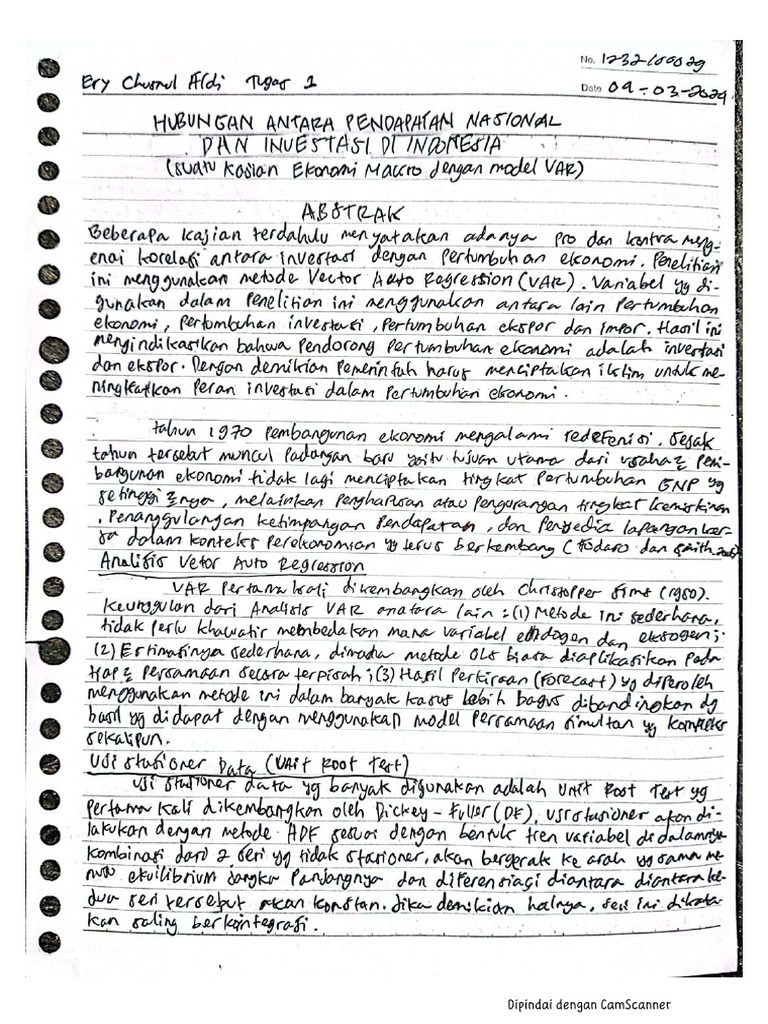 No. 1232100029
Ery Chusnul Aldi Tugas 1
Date 09-03-2024
HUBUNGAN ANTARA PENDAPATAN NASIONAL
DAN INVESTASI DI INDONESIA
(suatu Kasian Ekonomi Macro dengan model VAR)
ABSTRAK
Beberapa kajian terdahulu menyatakan adanya pro dan kontra meng-
enai korelasi antara investasi dengan pertumbuhan ekonomi. Penelitian
ini menggunakan metode Vector Auto Regression (VAR). Variabel yg di-
gunakan dalam Penelitian ini menggunakan antara lain pertumbuhan
ekonomi, pertumbuhan investasi, pertumbuhan ekspor dan impor. Hasil ini
mengindikasikan bahwa pendorong pertumbuhan ekonomi adalah investasi
dan ekspor. Dengan demikian pemerintah harus menciptakan iklim untuk me-
ningkatkan peran investasi dalam pertumbuhan ekonomi.
tahun 1970 pembangunan ekonomi mengalami redefenisi. Sejak
tahun tersebut muncul padangan baru yaitu tujuan utama dari usaha2 pem-
bangunan ekonomi tidak lagi menciptakan tingkat pertumbuhan GNP yg
setinggi2nya, melainkan penghapusan atau pengurangan tingkat kemiskinan
, Penanggulangan ketimpangan pendapatan, dan Penyedia lapangan ker-
ja dalam konteks perekonomian yg terus berkembang (Todaro dan smith
Analisis Vetor Auto Regression
VAR pertama kali dikembangkan oleh Christopper Sims (1980).
Keunggulan dari Analisis VAR anatara lain : (1) Metode ini sederhana,
tidak perlu khawatir membedakan mana variabel endogen dan eksogen;
(2) Estimasinya sederhana, dimana metode OLS biasa diaplikasikan pada
tiap2 persamaan secara terpisah; (3) Hasil Perkiraan (forecast) yg diperoleh
menggunakan metode ini dalam banyak kasus lebih bagus dibandingkan dg
hasil yg didapat dengan menggunakan model persamaan simultan yg kompleks
sekalipun.
Uji stasioner Data (Unit Root Test)
Uji stasioner data yg banyak digunakan adalah Unit Root Test yg
pertama kali dikembangkan oleh Dickey-Fuller (DF). Uji stasioner akan di-
lakukan dengan metode ADF sesuai dengan bentuk tren variabel di dalamnya
kombinasi dari 2 seri yg tidak stasioner, akan bergerak ke arah yg sama me-
nuju ekuilibrium jangka panjangnya dan diferensiasi diantara diantara ke-
dua seri tersebut akan konstan. Jika demikian halnya, seri ini dikata-
kan saling berkointegrasi.
Dipindai dengan CamScanner